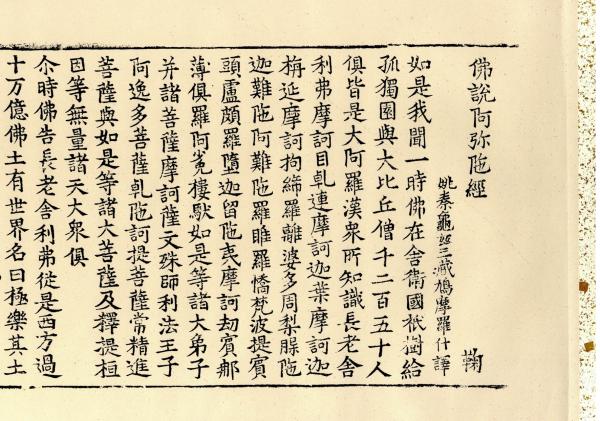 佛說阿弥陁經 鞠
姚秦龜兹三藏鳩摩羅什譯
如是我聞一時佛在舍衛國祇樹給
孤獨園與大比丘僧千二百五十人
俱皆是大阿羅漢衆所知識長老舍
利弗摩訶目乹連摩訶迦葉摩訶迦
栴延摩訶拘絺羅離婆多周梨陁
迦難陁阿難陁羅睺羅憍梵波提賓
頭盧頗羅墮迦留陁夷摩訶劫賓那
薄俱羅阿㝹樓馱如是等諸大弟子
并諸菩薩摩訶薩文殊師利法王子
阿逸多菩薩乹陁訶提菩薩常精進
菩薩與如是等諸大菩薩及釋提桓
因等無量諸天大衆俱
尒時佛告長老舍利弗從是西方過
十万億佛土有世界名曰極樂其土